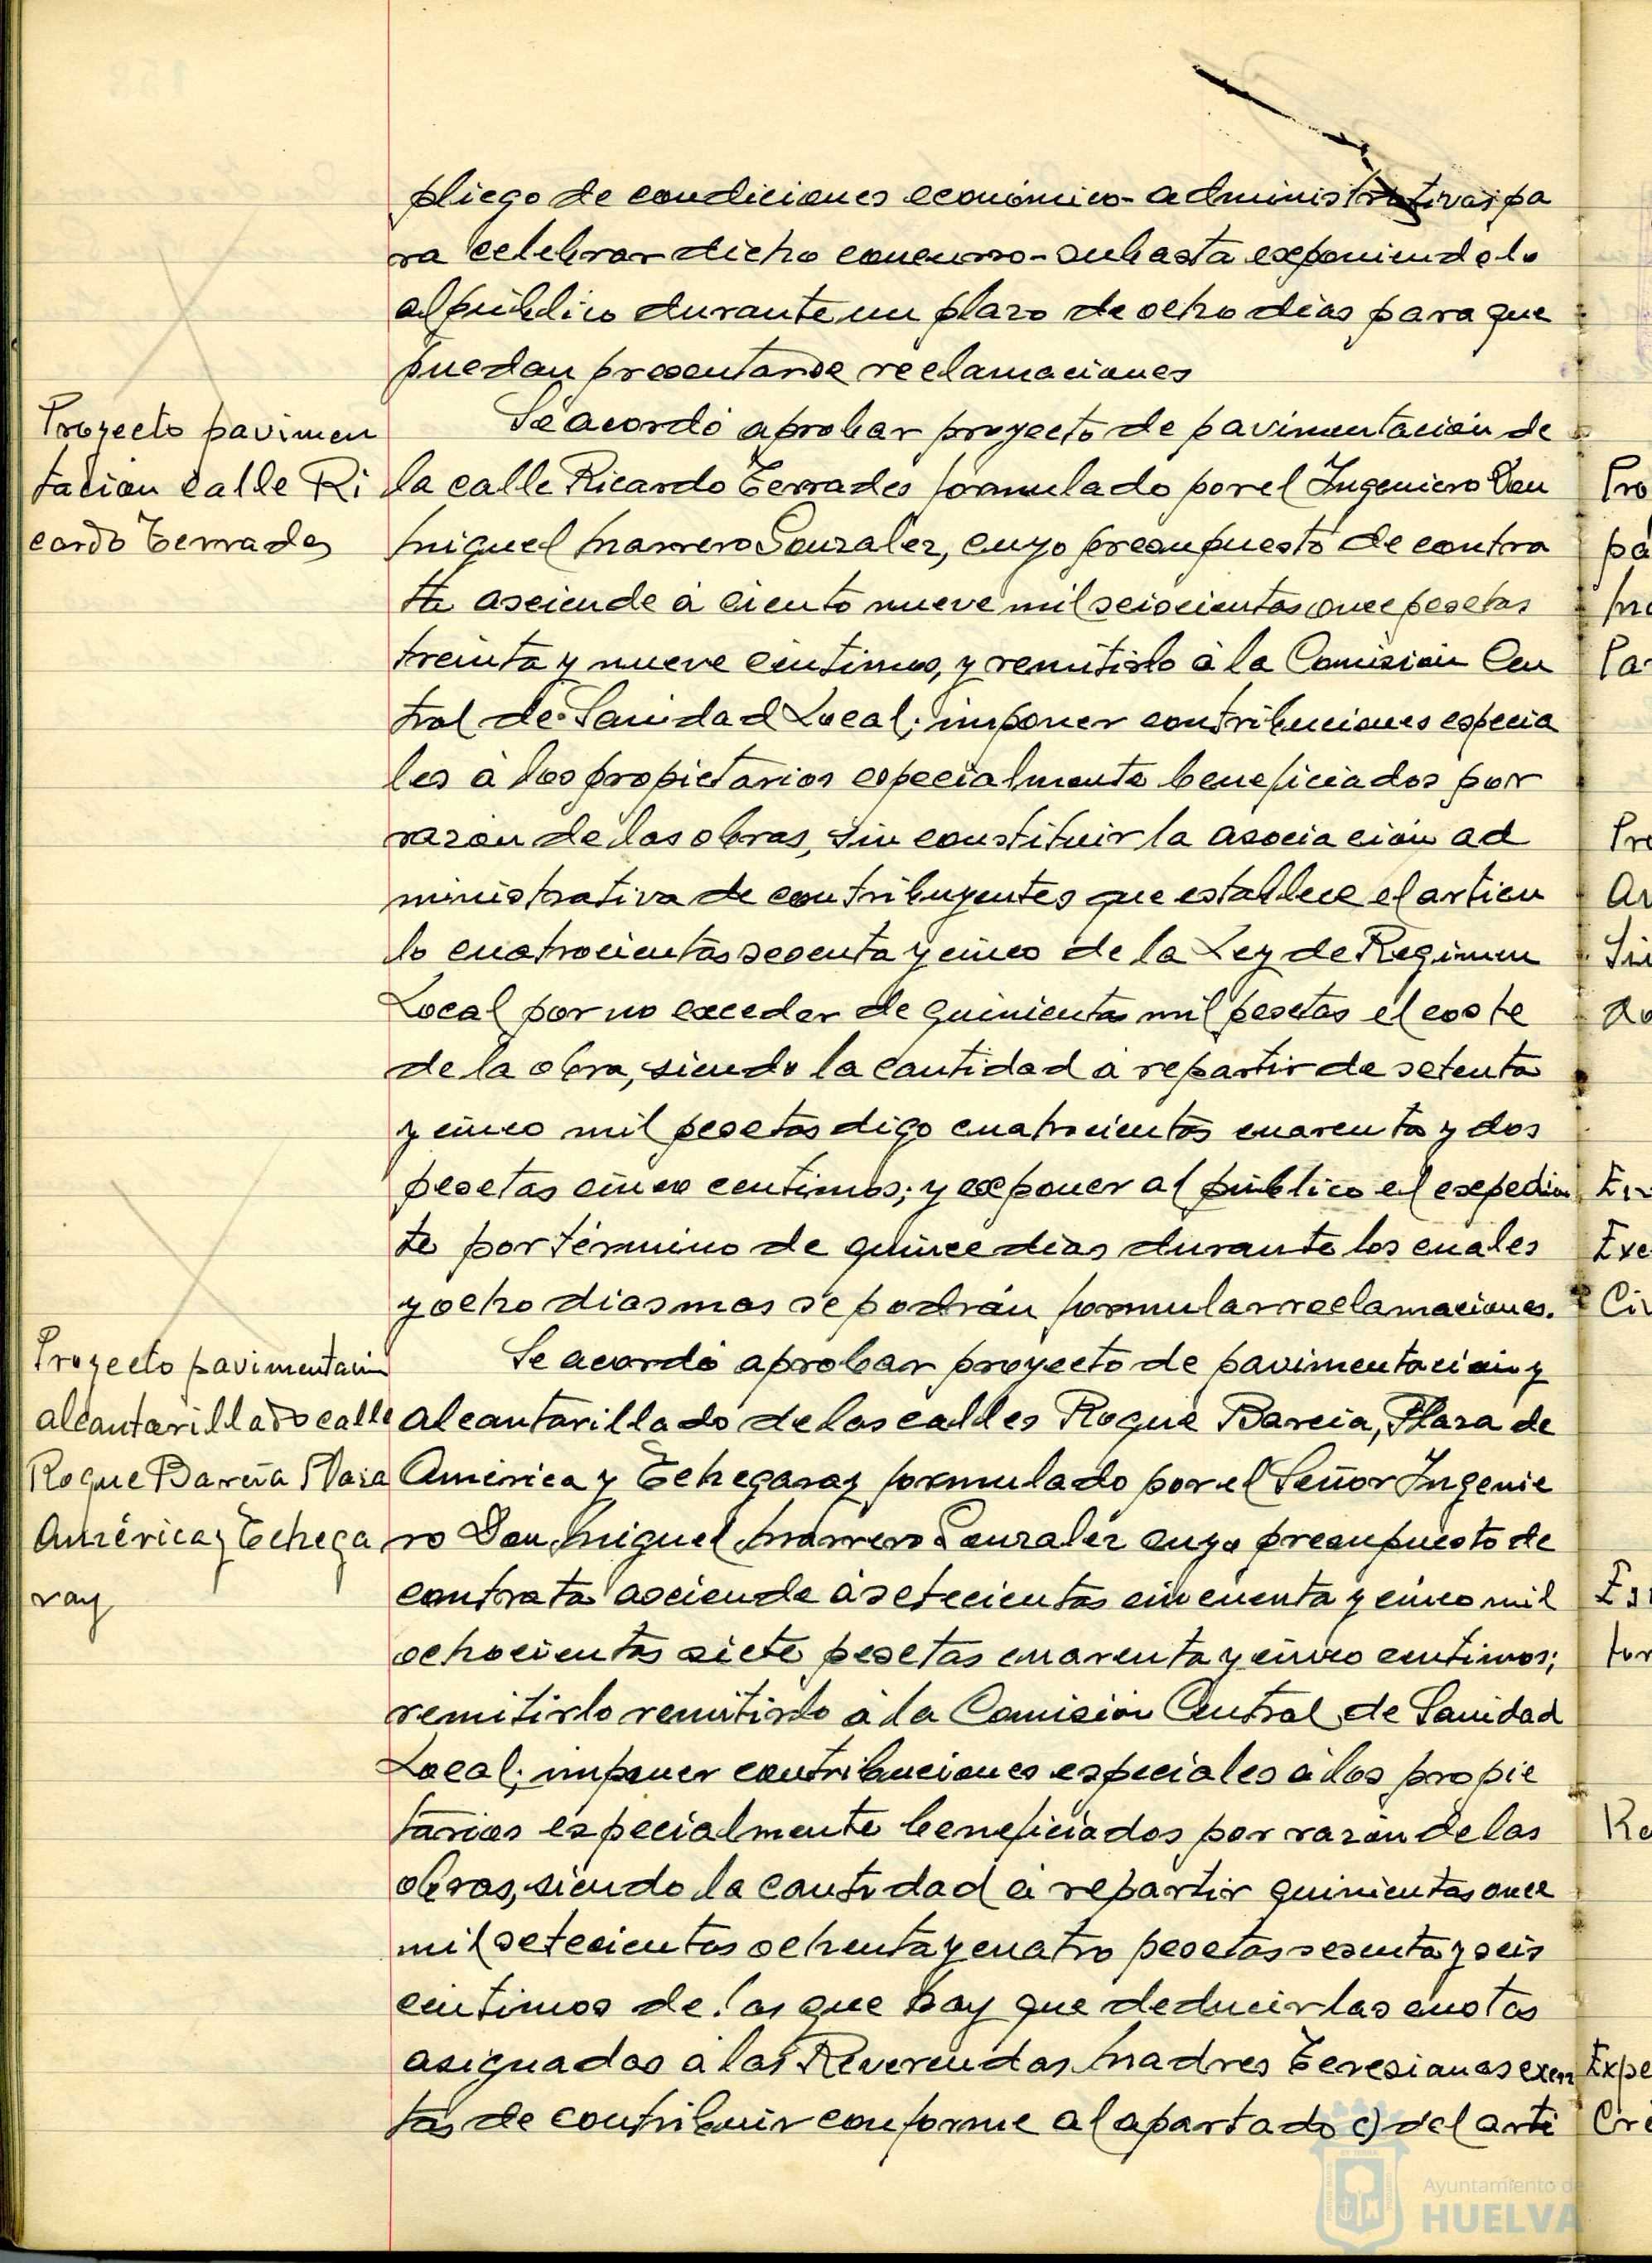 pliego de condiciones económico-administrativas pa
ra celebrar dicho concurso-subasta exponiendolo
al público durante un plazo de ocho días para que
puedan presentarse reclamaciones
Proyecto pavimen
tacion calle Ri
cardo Terrades
Se acordó aprobar proyecto de pavimentación de
la calle Ricardo Terrades formulado por el Ingeniero Don
Miguel Marrero Gonzalez, cuyo presupuesto de contra
ta asciende a ciento nueve mil seiscientas once pesetas
treinta y nueve centimos, y remitirlo a la Comisión Cen
tral de Sanidad Local; imponer contribuciones especia
les a los propietarios especialmente beneficiados por
razon de las obras, sin constituir la asociación ad
ministrativa de contribuyentes que establece el articu
lo cuatrocientos sesenta y cinco de la Ley de Regimen
Local por no exceder de quinientas mil pesetas el coste
de la obra, siendo la cantidad a repartir de setenta
y cinco mil pesetas digo cuatrocientas cuarenta y dos
pesetas cinco centimos; y exponer al público el expedien
te por término de quince días durante los cuales
y ocho dias mas se podrán formular reclamaciones.
Proyecto pavimentacion
alcantarillado calle
Roque Barcia Plaza
América y Echega
ray
Se acordó aprobar proyecto de pavimentación y
alcantarillado de las calles Roque Barcia, Plaza de
América y Echegaray formulado por el Señor Ingenie
ro Don Miguel Marrero Gonzalez cuyo presupuesto de
contrata asciende a setecientas cincuenta y cinco mil
ochocientas siete pesetas cuarenta y cinco centimos;
remitirlo remitirlo a la Comisión Central de Sanidad
Local; imponer contribuciones especiales a los propie
tarios especialmente beneficiados por razon de las
obras, siendo la cantidad a repartir quinientas once
mil setecientas ochenta y cuatro pesetas sesenta y seis
centimos de las que hay que deducir las cuotas
asignadas a las Reverendas Madres Teresianas exen
tas de contribuir conforme al apartado c) del arti
Ayuntamiento de
HUELVA